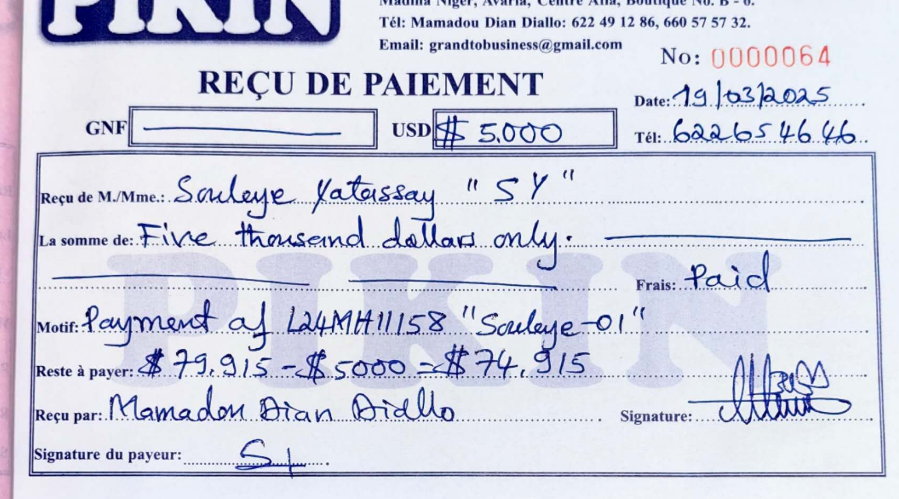 PIKIN
Madina Niger, Avaria, Centre Alfa, Boutique No. B - 6.
Tél: Mamadou Dian Diallo: 622 49 12 86, 660 57 57 32.
Email: grandtobusiness@gmail.com
No: 0000064
REÇU DE PAIEMENT
Date: 19/03/2025
GNF
USD $ 5.000
Tél: 622654646
Reçu de M./Mme.: Souleye Yatassay "SY"
La somme de: Five thousand dollars only.
Frais: Paid
Motif: Payment of L24MH11158 "Souleye-01"
Reste à payer: $ 79,915 - $ 5000 = $ 74,915
Reçu par: Mamadou Dian Diallo
Signature:
Signature du payeur:
PIKIN